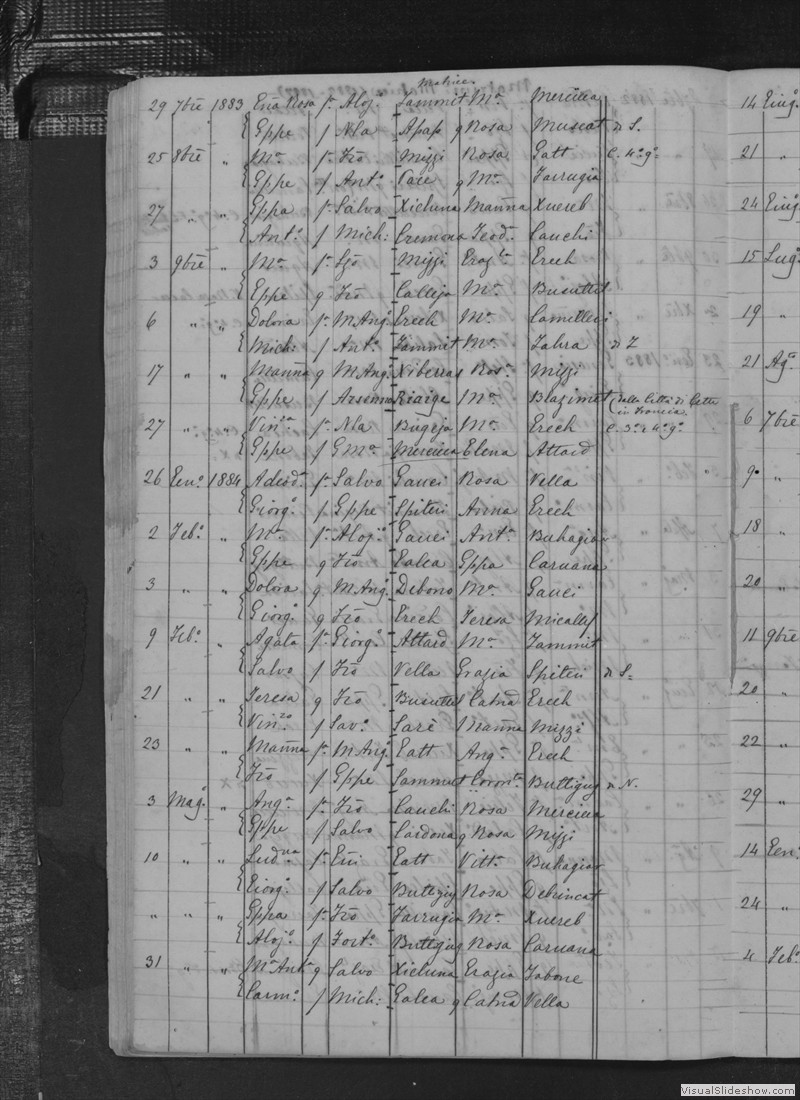 29 7bre 1883 Enia Rosa f. Aloj.o Sammit M.a Mercieca
{ Gppe f Nla Apap q Rosa Muscat di S.
25 8bre " M.a f. Fro Mizzi Rosa Gatt C. 4.o g.o
{ Gppe q Ant.o Pace q M.a Farrugia
27 " " Gppa f. Salvo Xicluna Manna Xuereb
{ Ant.o f Mich: Cremona Teod.a Cauchi
3 9bre " M.a f. Mizzi Erech
{ Gppe q Fro Calleja M.a Busuttil
6 " " Dolora f. M Ang.o Erech M.a Camilleri
{ Mich: f Ant.o Sammit M.a Zahra di Z
17 " " Manna q M Ang.o Xiberras Ros.a Mizzi
{ Gppe f M.a (della Città di Cette
in Francia
27 " " Vin.a f. Nla Bugeja M.a Erech C. 3.o e 4.o g.o
{ Gppe f G M.a Mercieca Elena Attard
26 Gen.o 1884 Adeod.a f. Salvo Gauci Rosa Vella
{ Giorg.o f Gppe Spiteri Anna Erech
2 Feb.o " M.a f. Aloj.o Gauci Ant.a Buhagiar
{ Gppe q Fro Galea Gppa Caruana
3 " " Dolora q M Ang.o Debono M.a Gauci
{ Giorg.o q Fro Erech Teresa Micallef
9 Feb.o " Agata f. Giorg.o Attard M.a Zammit
{ Salvo f Fro Vella Grazia Spiteri di S.
21 " " Teresa q Fro Busuttil Catna Erech
{ Vin.zo f Sav.o Sarè Manna Mizzi
23 " " Manna f. M Ang.o Gatt Ang.a Erech
{ Fro f Gppe Sammut Buttigieg di N.
3 Mag.o " Ang.a f. Fro Cauchi Rosa Mercieca
{ Gppe f Salvo Cardona q Rosa Mizzi
10 " " Lud.na f. Gatt Vitt.a Buhagiar
{ Giorg.o f Salvo Buttigieg Rosa Debrincat
" " " Gppa f. Fro Farrugia M.a Xuereb
{ Aloj.o f Fort.o Buttigieg Rosa Caruana
31 " " M.a Ant.a q Salvo Xicluna Grazia Fabone
{ Carm.o f Mich: Galea q Catna Vella
14 Giug.o
21 "
24 Giug.o
15 Lug.o
19 "
21 Ag.o
6 7bre
9 "
18 "
20 "
11 9bre
20 "
22 "
29 "
14 Gen.o
24 "
4 Feb.o
VisualSlideshow.com